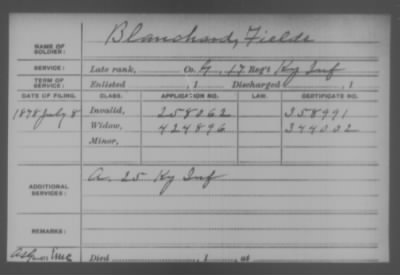 NAME OF SOLDIER: Blanchard, Fields
SERVICE: Late rank, Co. G, 17 Reg't Ky Inf
TERM OF SERVICE: Enlisted , 1 Discharged , 1
DATE OF FILING. CLASS. APPLICATION NO. LAW. CERTIFICATE NO.
1878 July 8 Invalid, 258062 358991
Widow, 424896 344002
Minor,
ADDITIONAL SERVICES: A. 25 Ky Inf
REMARKS:
Died , 1 , at